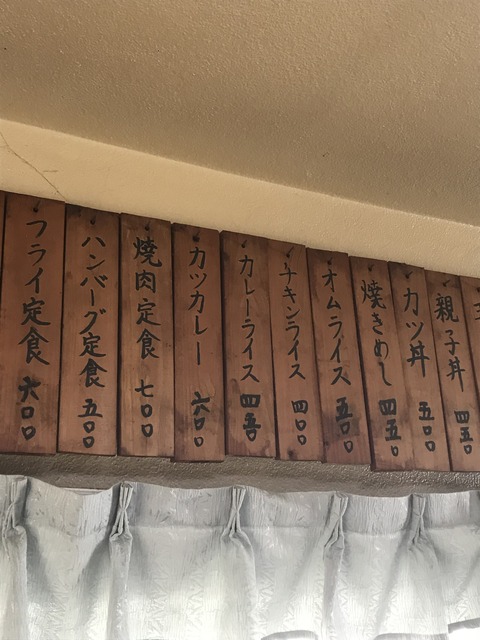 親子丼 四五〇
カツ丼 五〇〇
焼きめし 四五〇
オムライス 五〇〇
チキンライス 四〇〇
カレーライス 四五〇
カツカレー 六〇〇
焼肉定食 七〇〇
ハンバーグ定食 五〇〇
フライ定食 六〇〇